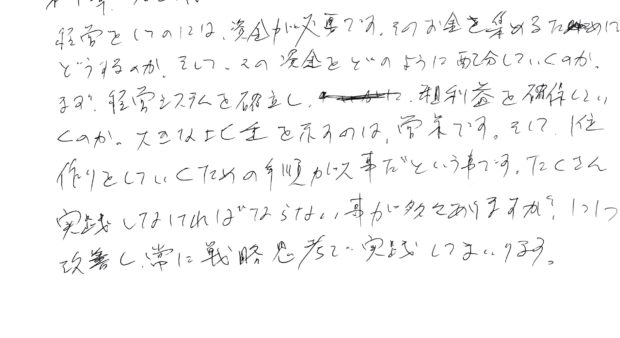 経営をしていくのには、資金が必要です。そのお金を集めるために
どうするのか。そして、その資金をどのように配分していくのか。
まず、経営システムを確立し、粗利益を確保してい
くのか。大きな比重を示すのは、営業です。そして、1つ1つ
作りをしていくための手順が大事だという事です。たくさん
実践しなければならない事が多々ありますが、1つ1つ
改善し、常に戦略思考で実践してまいります。